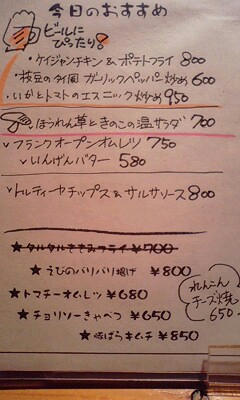 今日のおすすめ
ビールに
ぴったり!
・ケイジャンチキン&ポテトフライ 800
・枝豆のタイ風 ガーリックペッパー炒め 600
・いかとトマトのエスニック炒め 950
ほうれん草ときのこの温サラダ 700
∨フランクオープンオムレツ 750
∨いんげんバター 580
∨トルティーヤチップス&サルサソース 800
★タルタルささみフライ ¥700
★えびのパリパリ揚げ ¥800
★トマチーオムレツ ¥680
★チョリソーきゃべつ ¥650
★豚ばらキムチ ¥850
れんこん
チーズ焼
650